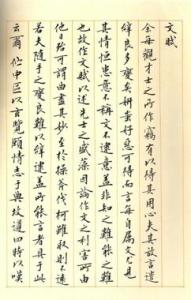 文賦
余每觀才士之所作竊有以得其用心夫其放言遣
辭良多變矣妍蚩好惡可得而言每自屬文尤見
其情恒患意不稱物文不逮意蓋非知之難能之難
也故作文賦以述先士之盛藻因論作文之利害所由
他日殆可謂曲盡其妙至於操斧伐柯雖取則不遠
若夫隨手之變良難以辭逮蓋所能言者具於此
云爾佇中區以玄覽頤情志于典墳遵四時以嘆